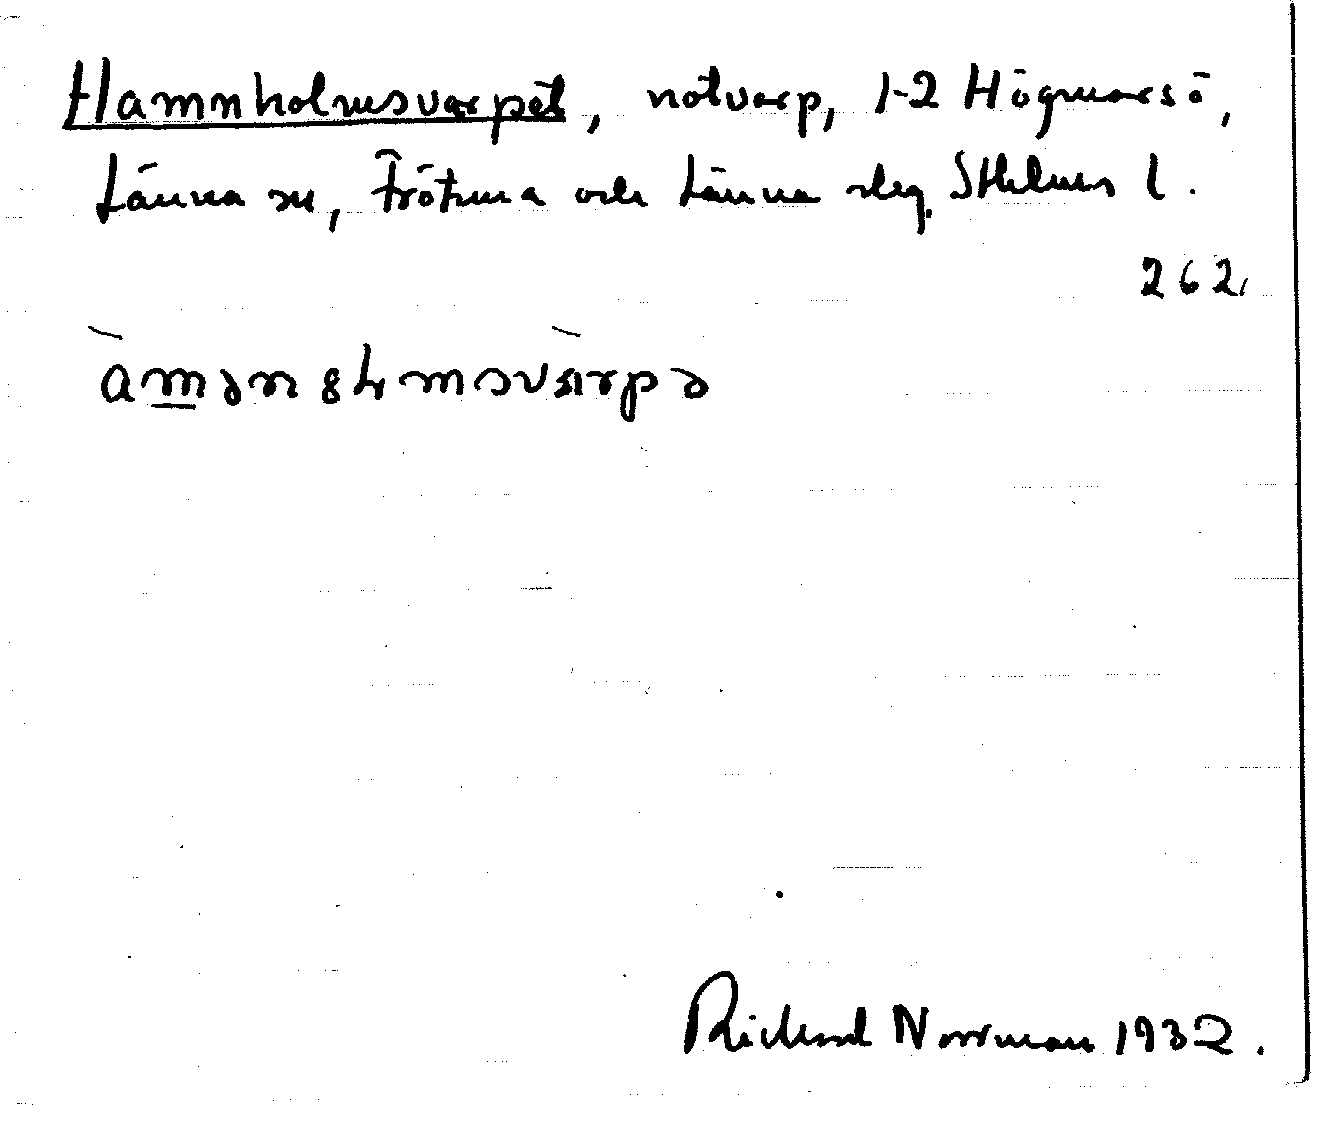 Hamnholmsvarpet, notvarp, 1-2 Högmarsö,
Länna sn, Frötuna och Länna slg. Sthlms l.
262,
Richard Norrman 1932.